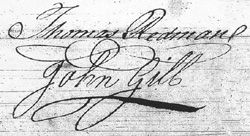 Thomas Redman
John Gill